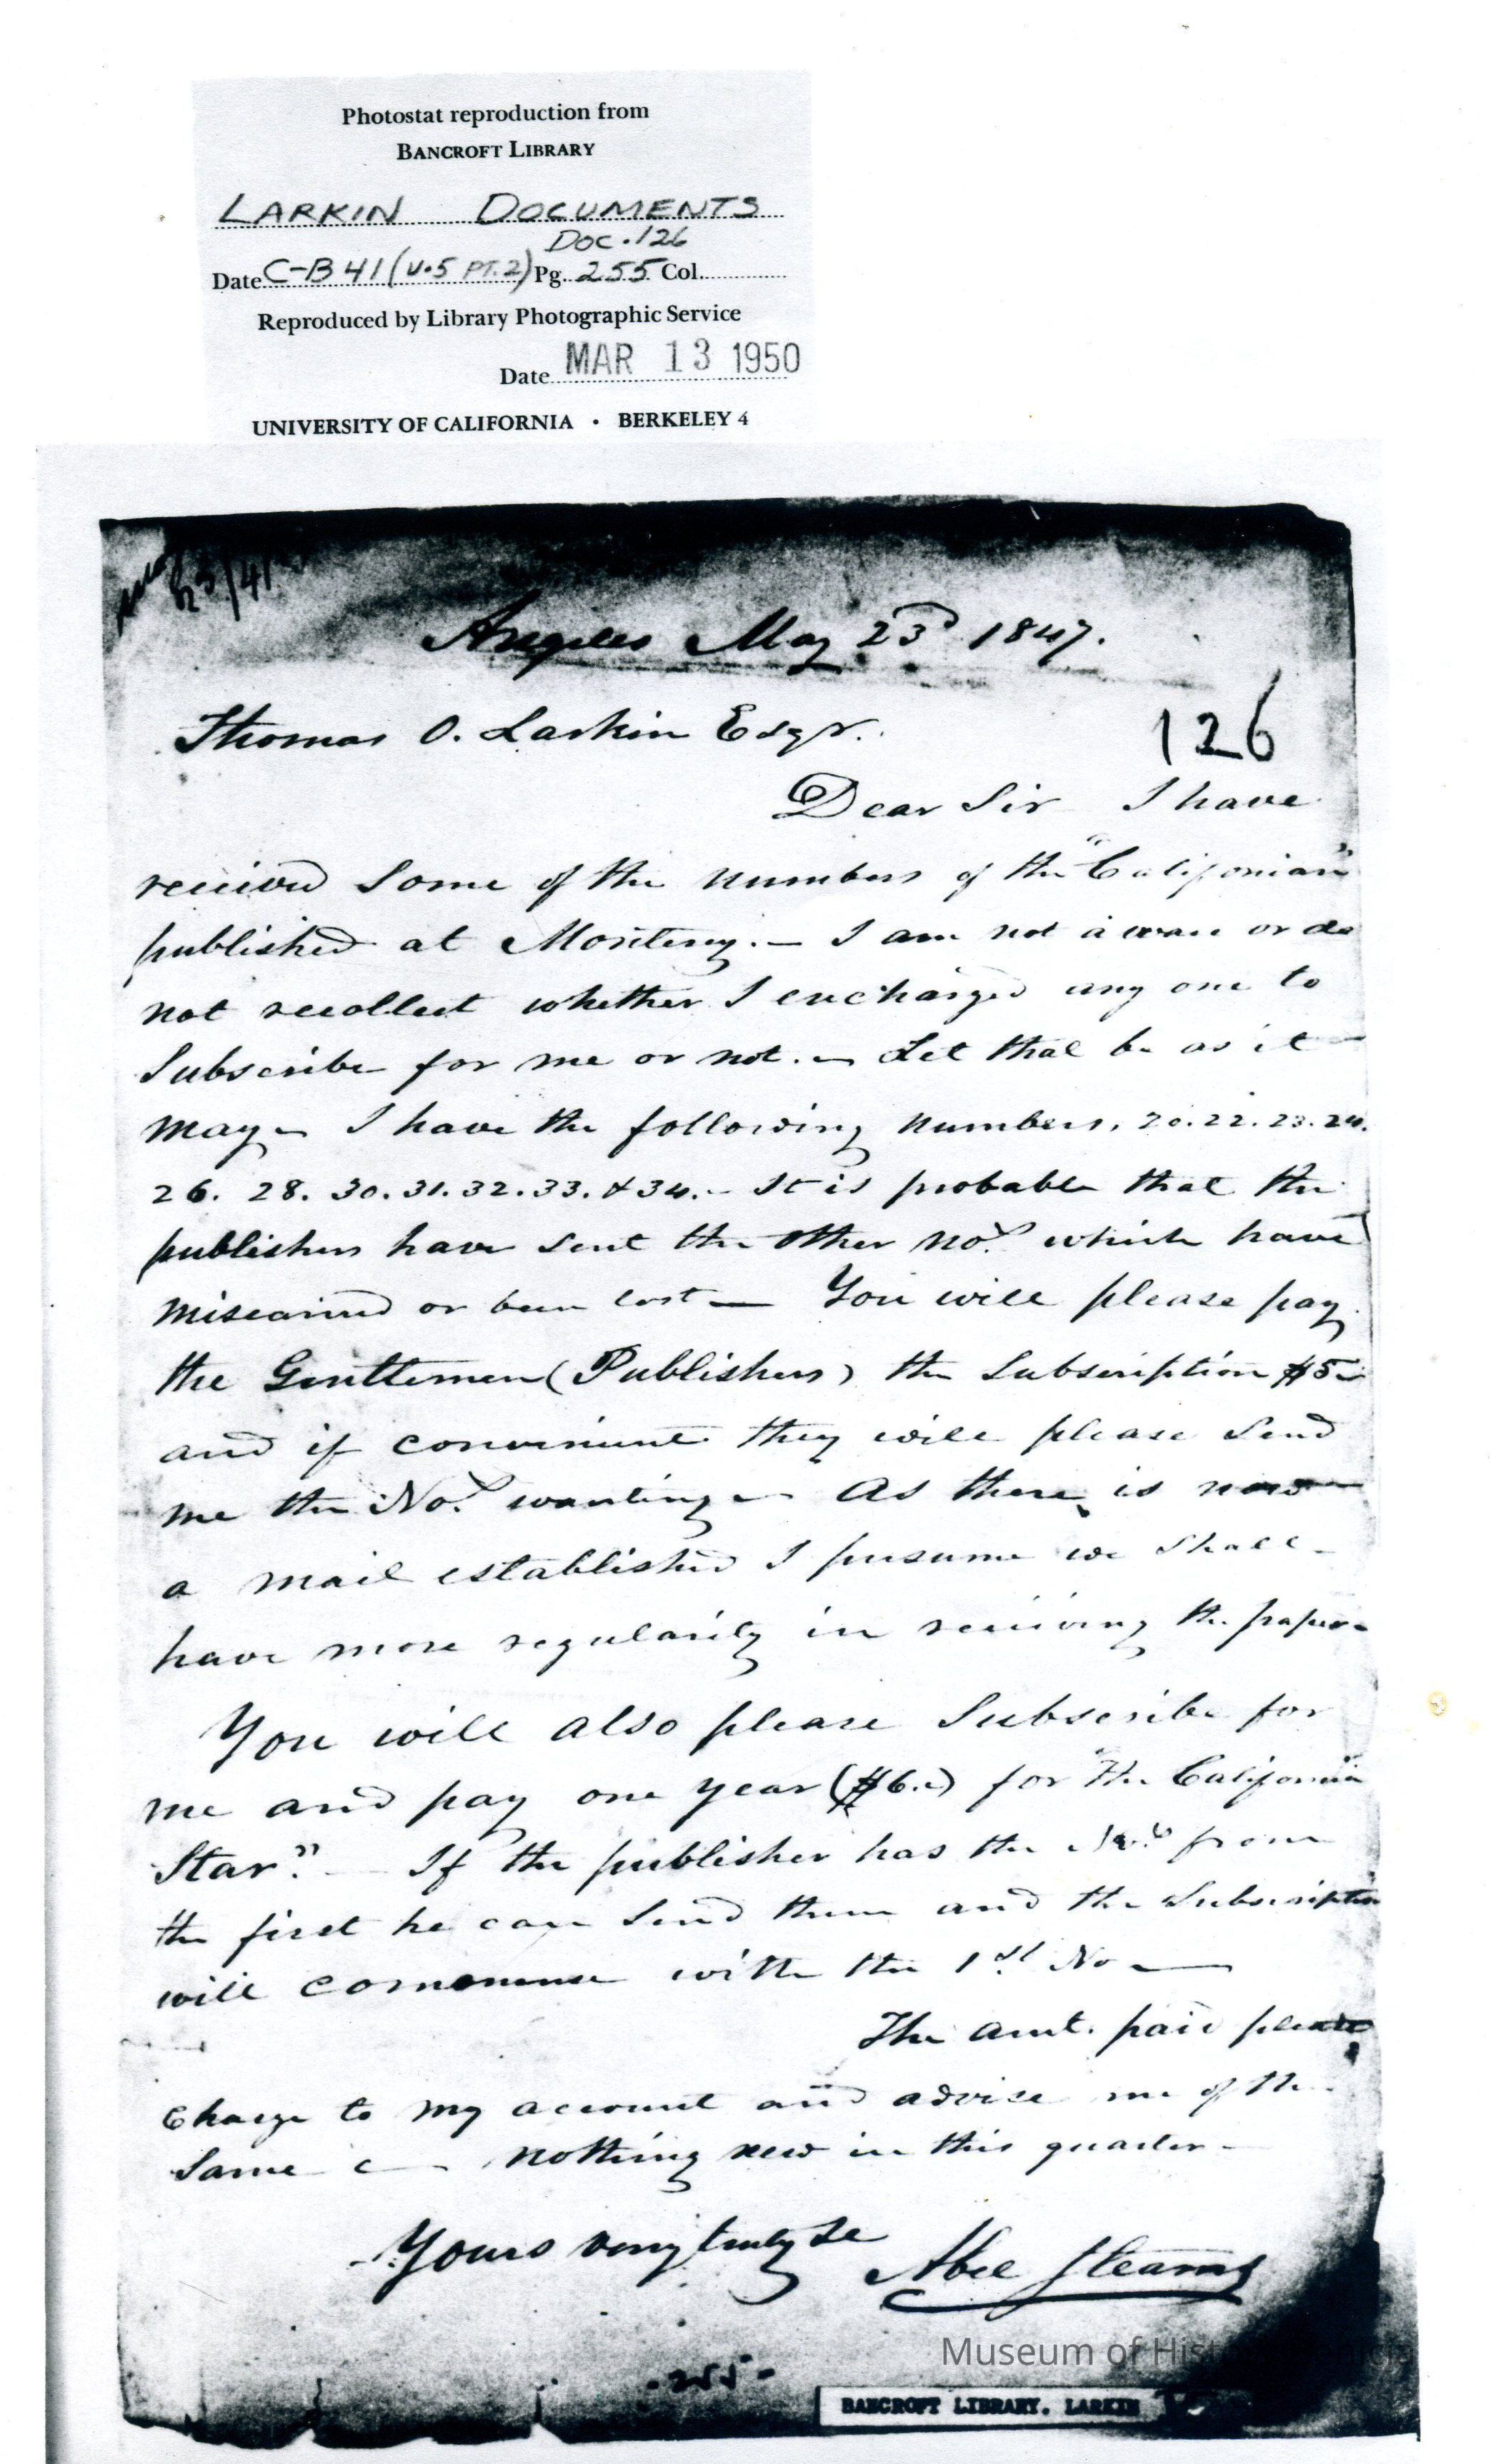 Photostat reproduction from
BANCROFT LIBRARY
LARKIN DOCUMENTS
DOC. 126
Date C-B 41 (V.5 PT.2) Pg. 255 Col.
Reproduced by Library Photographic Service
Date MAR 13 1950
UNIVERSITY OF CALIFORNIA · BERKELEY 4
23/47
Angeles May 23d 1847.
Thomas O. Larkin Esqr.
126
Dear Sir I have
received Some of the numbers of the "Californian"
published at Monterey. — I am not aware or do
not recollect whether I encharged any one to
Subscribe for me or not. — Let that be as it
may — I have the following numbers, 20. 22. 23. 24.
26. 28. 30. 31. 32. 33. & 34. — It is probable that the
publishers have sent the other Nos. which have
miscarried or been lost — You will please pay
the Gentlemen (Publishers) the Subscription $5—
and if convenient they will please Send
me the Nos. wanting — As there is now
a mail established I presume we Shall
have more regularity in receiving the papers
You will also please Subscribe for
me and pay one year ($6.—) for "The California
Star". — If the publisher has the Nos. from
the first he can Send them and the Subscription
will commence with the 1st. No —
The amt. paid please
Charge to my account and advise me of the
Same — nothing new in this quarter —
Yours very truly &c
Abel Stearns
- 255 -
Museum of His
BANCROFT LIBRARY. LARKIN